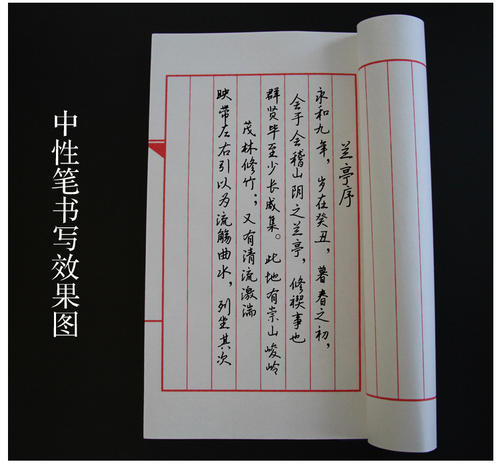 中性笔书写效果图
兰亭序
永和九年，岁在癸丑，暮春之初，
会于会稽山阴之兰亭，修禊事也
群贤毕至少长咸集。此地有崇山峻岭
茂林修竹；又有清流激湍
映带左右引以为流觞曲水，列坐其次